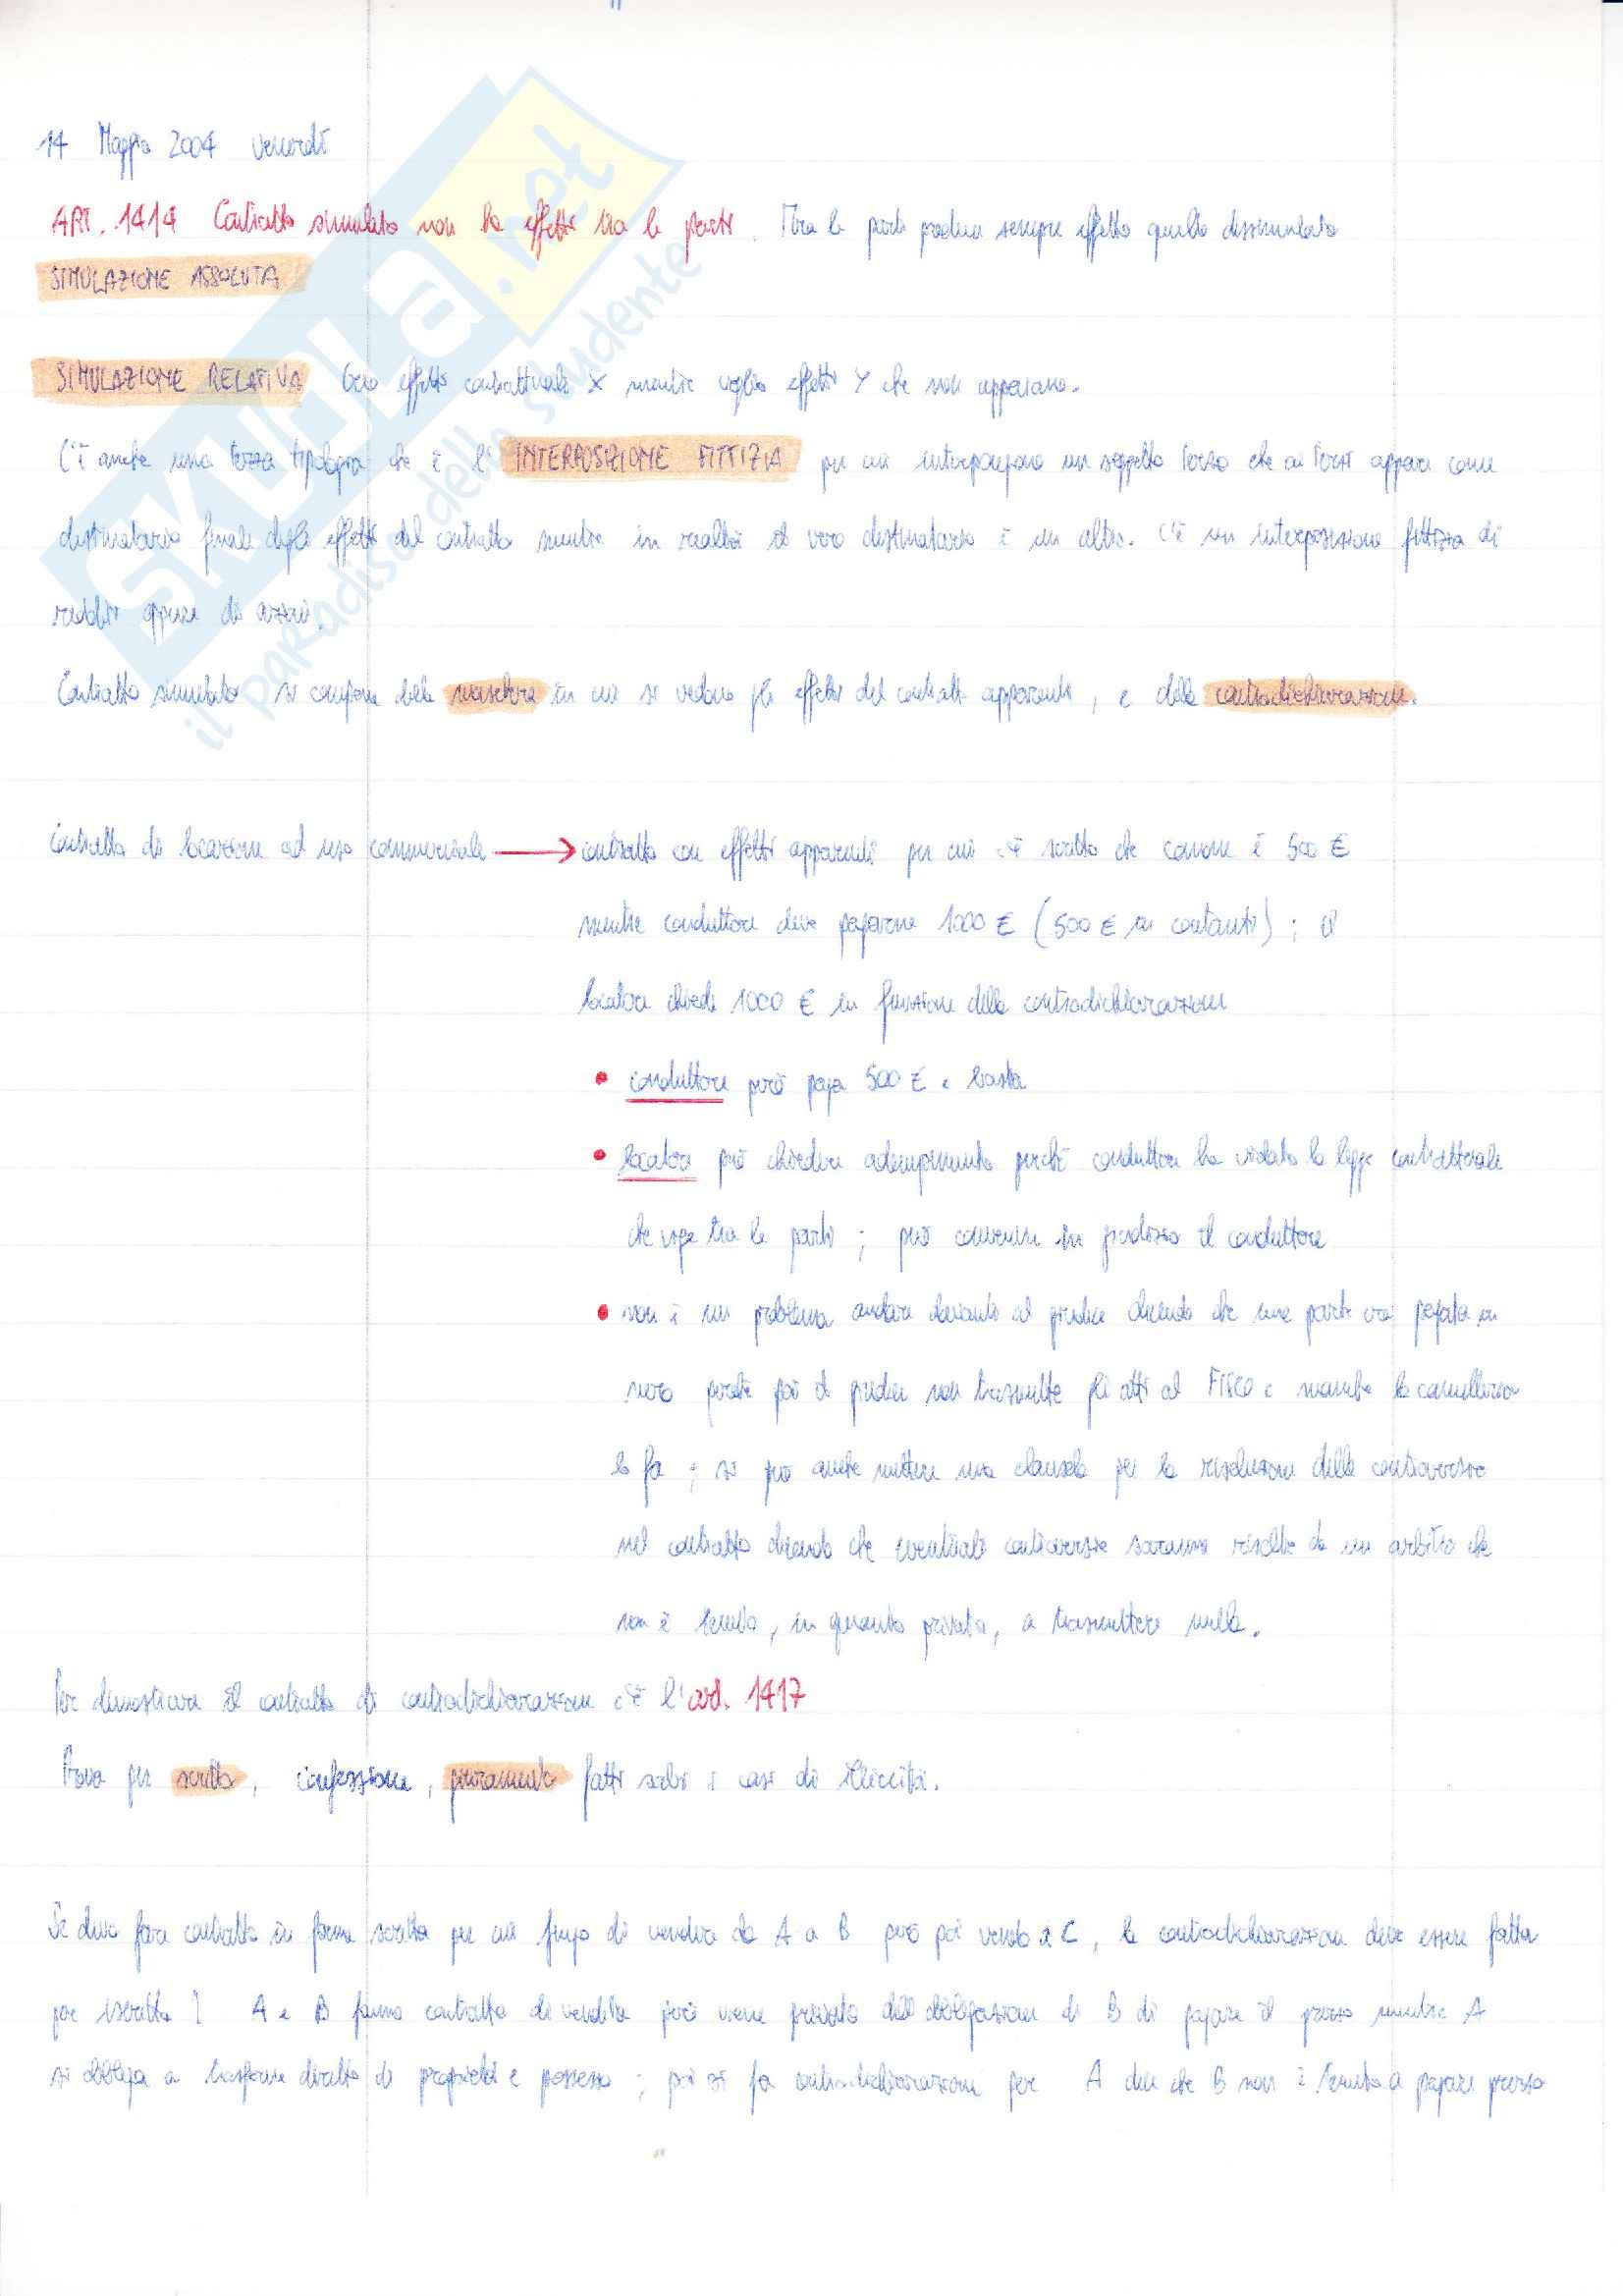 14 Maggio 2004 Venerdì
ART. 1414 Contratto simulato non ha effetti tra le parti. Tra le parti produce sempre effetto quello dissimulato
SIMULAZIONE ASSOLUTA
SIMULAZIONE RELATIVA Creo effetti contrattuali X mentre voglio effetti Y che non appaiono.
C'è anche una terza tipologia che è l'INTERPOSIZIONE FITTIZIA per cui interpongono un soggetto terzo che ai terzi appare come
destinatario finale degli effetti del contratto mentre in realtà il vero destinatario è un altro. C'è un interposizione fittizia di
redditi oppure di azioni.
Contratto simulato si compone della maschera in cui si vedono gli effetti del contratto apparente, e della controdichiarazione.
Contratto di locazione ad uso commerciale → contratto con effetti apparenti per cui c'è scritto che canone è 500 €
mentre conduttore deve pagarne 1000 € (500 € in contanti); il
locatore chiede 1000 € in funzione della controdichiarazione
• conduttore però paga 500 € e basta
• locatore può chiedere adempimento perché conduttore ha violato la legge contrattuale
che vige tra le parti; può convenire in giudizio il conduttore
• non è un problema andare davanti al giudice dicendo che una parte era pagata in
nero perché poi il giudice non trasmette gli atti al FISCO e neanche la cancelleria
lo fa; si può anche mettere una clausola per la risoluzione delle controversie
nel contratto dicendo che eventuali controversie saranno risolte da un arbitro che
non è tenuto, in quanto privato, a trasmettere nulla.
Per dimostrare il contratto di controdichiarazione c'è l'art. 1417
Prova per scritto, confessione, giuramento fatti salvi i casi di illiceità.
Se devo fare contratto in forma scritta per cui fingo di vendere da A a B però poi vendo a C, la controdichiarazione deve essere fatta
per iscritto? A e B fanno contratto di vendita però viene privato dell'obbligazione di B di pagare il prezzo mentre A
si obbliga a trasferire diritto di proprietà e possesso; poi si fa controdichiarazione per A dice che B non è tenuto a pagare prezzo
SKUOLA.net
il paradiso dello studente